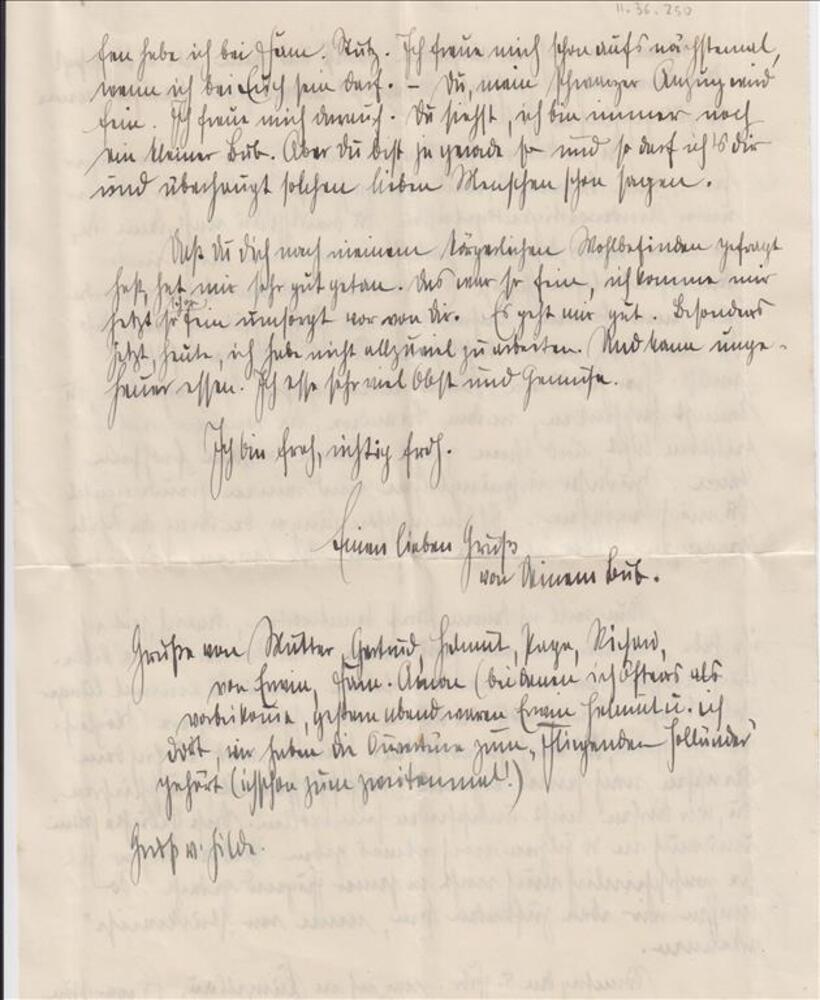 11.36.250
sen habe ich bei Fam. Stutz. Ich freue mich schon aufs nächstemal,
wenn ich bei Euch sein darf. – Du, mein schwarzer Anzug wird
fein. Ich freue mich darauf. Du siehst, ich bin immer noch
ein kleiner Bub. Aber Du bist ja gerade so und so darf ich's Dir
und überhaupt solchen lieben Menschen schon sagen.
Daß Du Dich nach meinem körperlichen Wohlbefinden gefragt
hast, hat mir sehr gut getan. Das war so fein, ich komme mir
jetzt so fein umsorgt vor von Dir. Es geht mir gut. Besonders
jetzt, heute, ich habe nicht allzuviel zu arbeiten. Und kann unge-
heuer essen. Ich esse sehr viel Obst und Gemüse.
Ich bin froh, richtig froh.
Einen lieben Gruß
von Deinem Bub.
Grüße von Mutter, Gertrud, Helmut, Papa, Richard,
von Erwin, Fam. (bei denen ich öfters als
vorbeikomme, gestern abend waren Erwin Helmut u. ich
dort, wir haben die Ouvertüre zum „Fliegenden Holländer"
gehört (ich schon zum zweitenmal!)
Gruß v. Hilde.